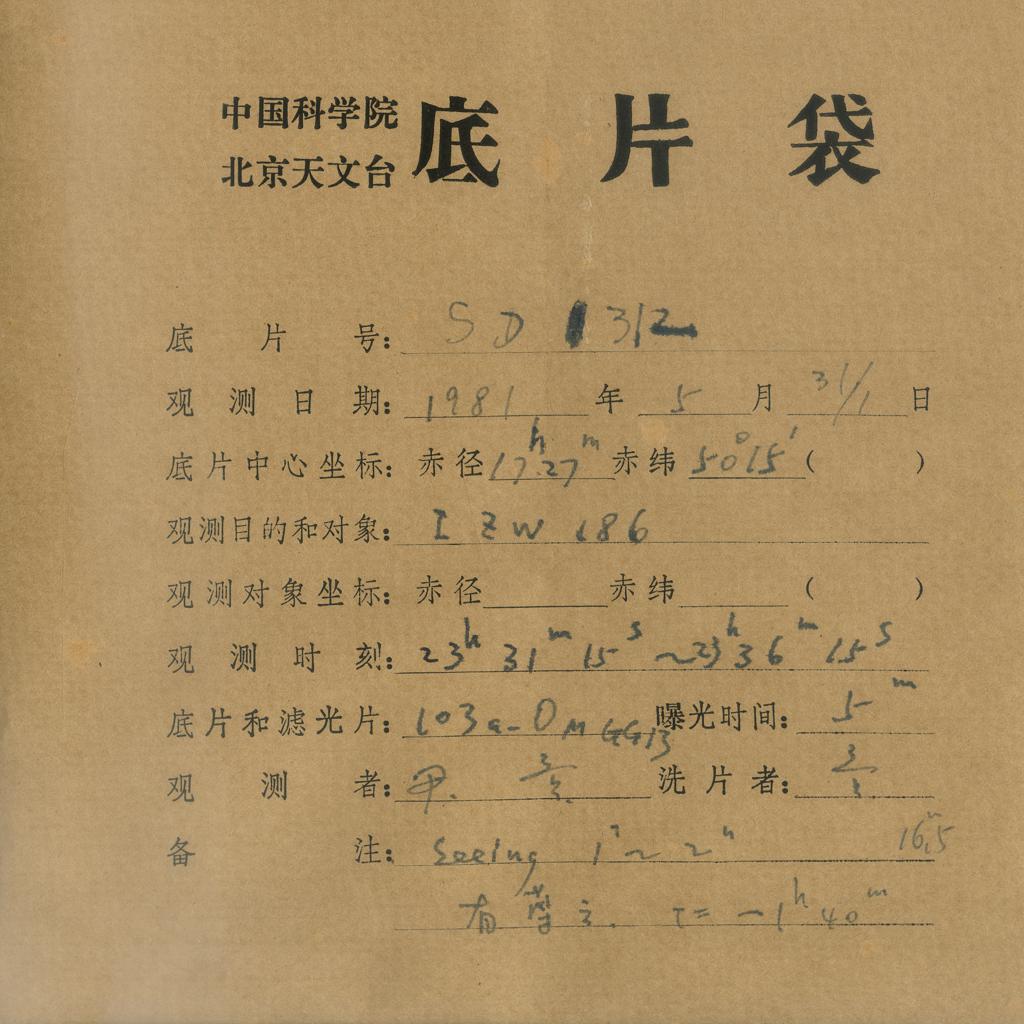 中国科学院
北京天文台
底片袋
底片号: SD 1312
观测日期: 1981 年 5 月 31/1 日
底片中心坐标: 赤径 17h27m 赤纬 50°15′ ( )
观测目的和对象: I ZW 186
观测对象坐标: 赤径 赤纬 ( )
观测时刻: 23h 31m 15s ~ 23h 36m 15s
底片和滤光片: 103a-O M GG13 曝光时间: 5m
观测者: 洗片者:
备注: Seeing 1″~2″ 16.5
有 T= -1h 40m